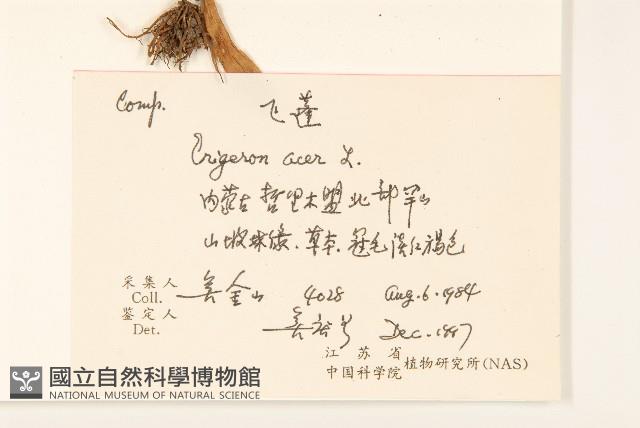 Comp. 飞蓬
Erigeron acer L.
内蒙古哲里木盟北部罕山
山坡林缘.草本.冠毛淡红褐色
采集人
Coll. 金山 4028 Aug.6.1984
鉴定人
Det. Dec.1987
江苏省
中国科学院 植物研究所(NAS)
國立自然科學博物館
NATIONAL MUSEUM OF NATURAL SCIENCE